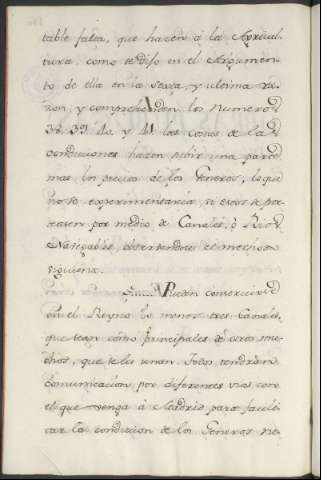 table falta, que hacen á la Agricul-
tura, como se dijo en el Argumen-
to de ella en la sexta, y ultima ra-
zon, y comprehenden los numeros
38. 39. 40. y 41. los costos de las
conduciones hacen subir una parte
mas los precios de los Generos, lo que
no se experimentaria, si estos se por-
teasen por medio de Canales, ó Rios
Navegables, observandose el methodo
siguiente.
Pueden construirse
en el Reyno lo menos tres Canales,
que sean como principales de otros mu-
chos, que se les unan. Todos tendrán
comunicacion por diferentes vias con
el que venga á Madrid para facili-
tar la conducion de los Generos ne-